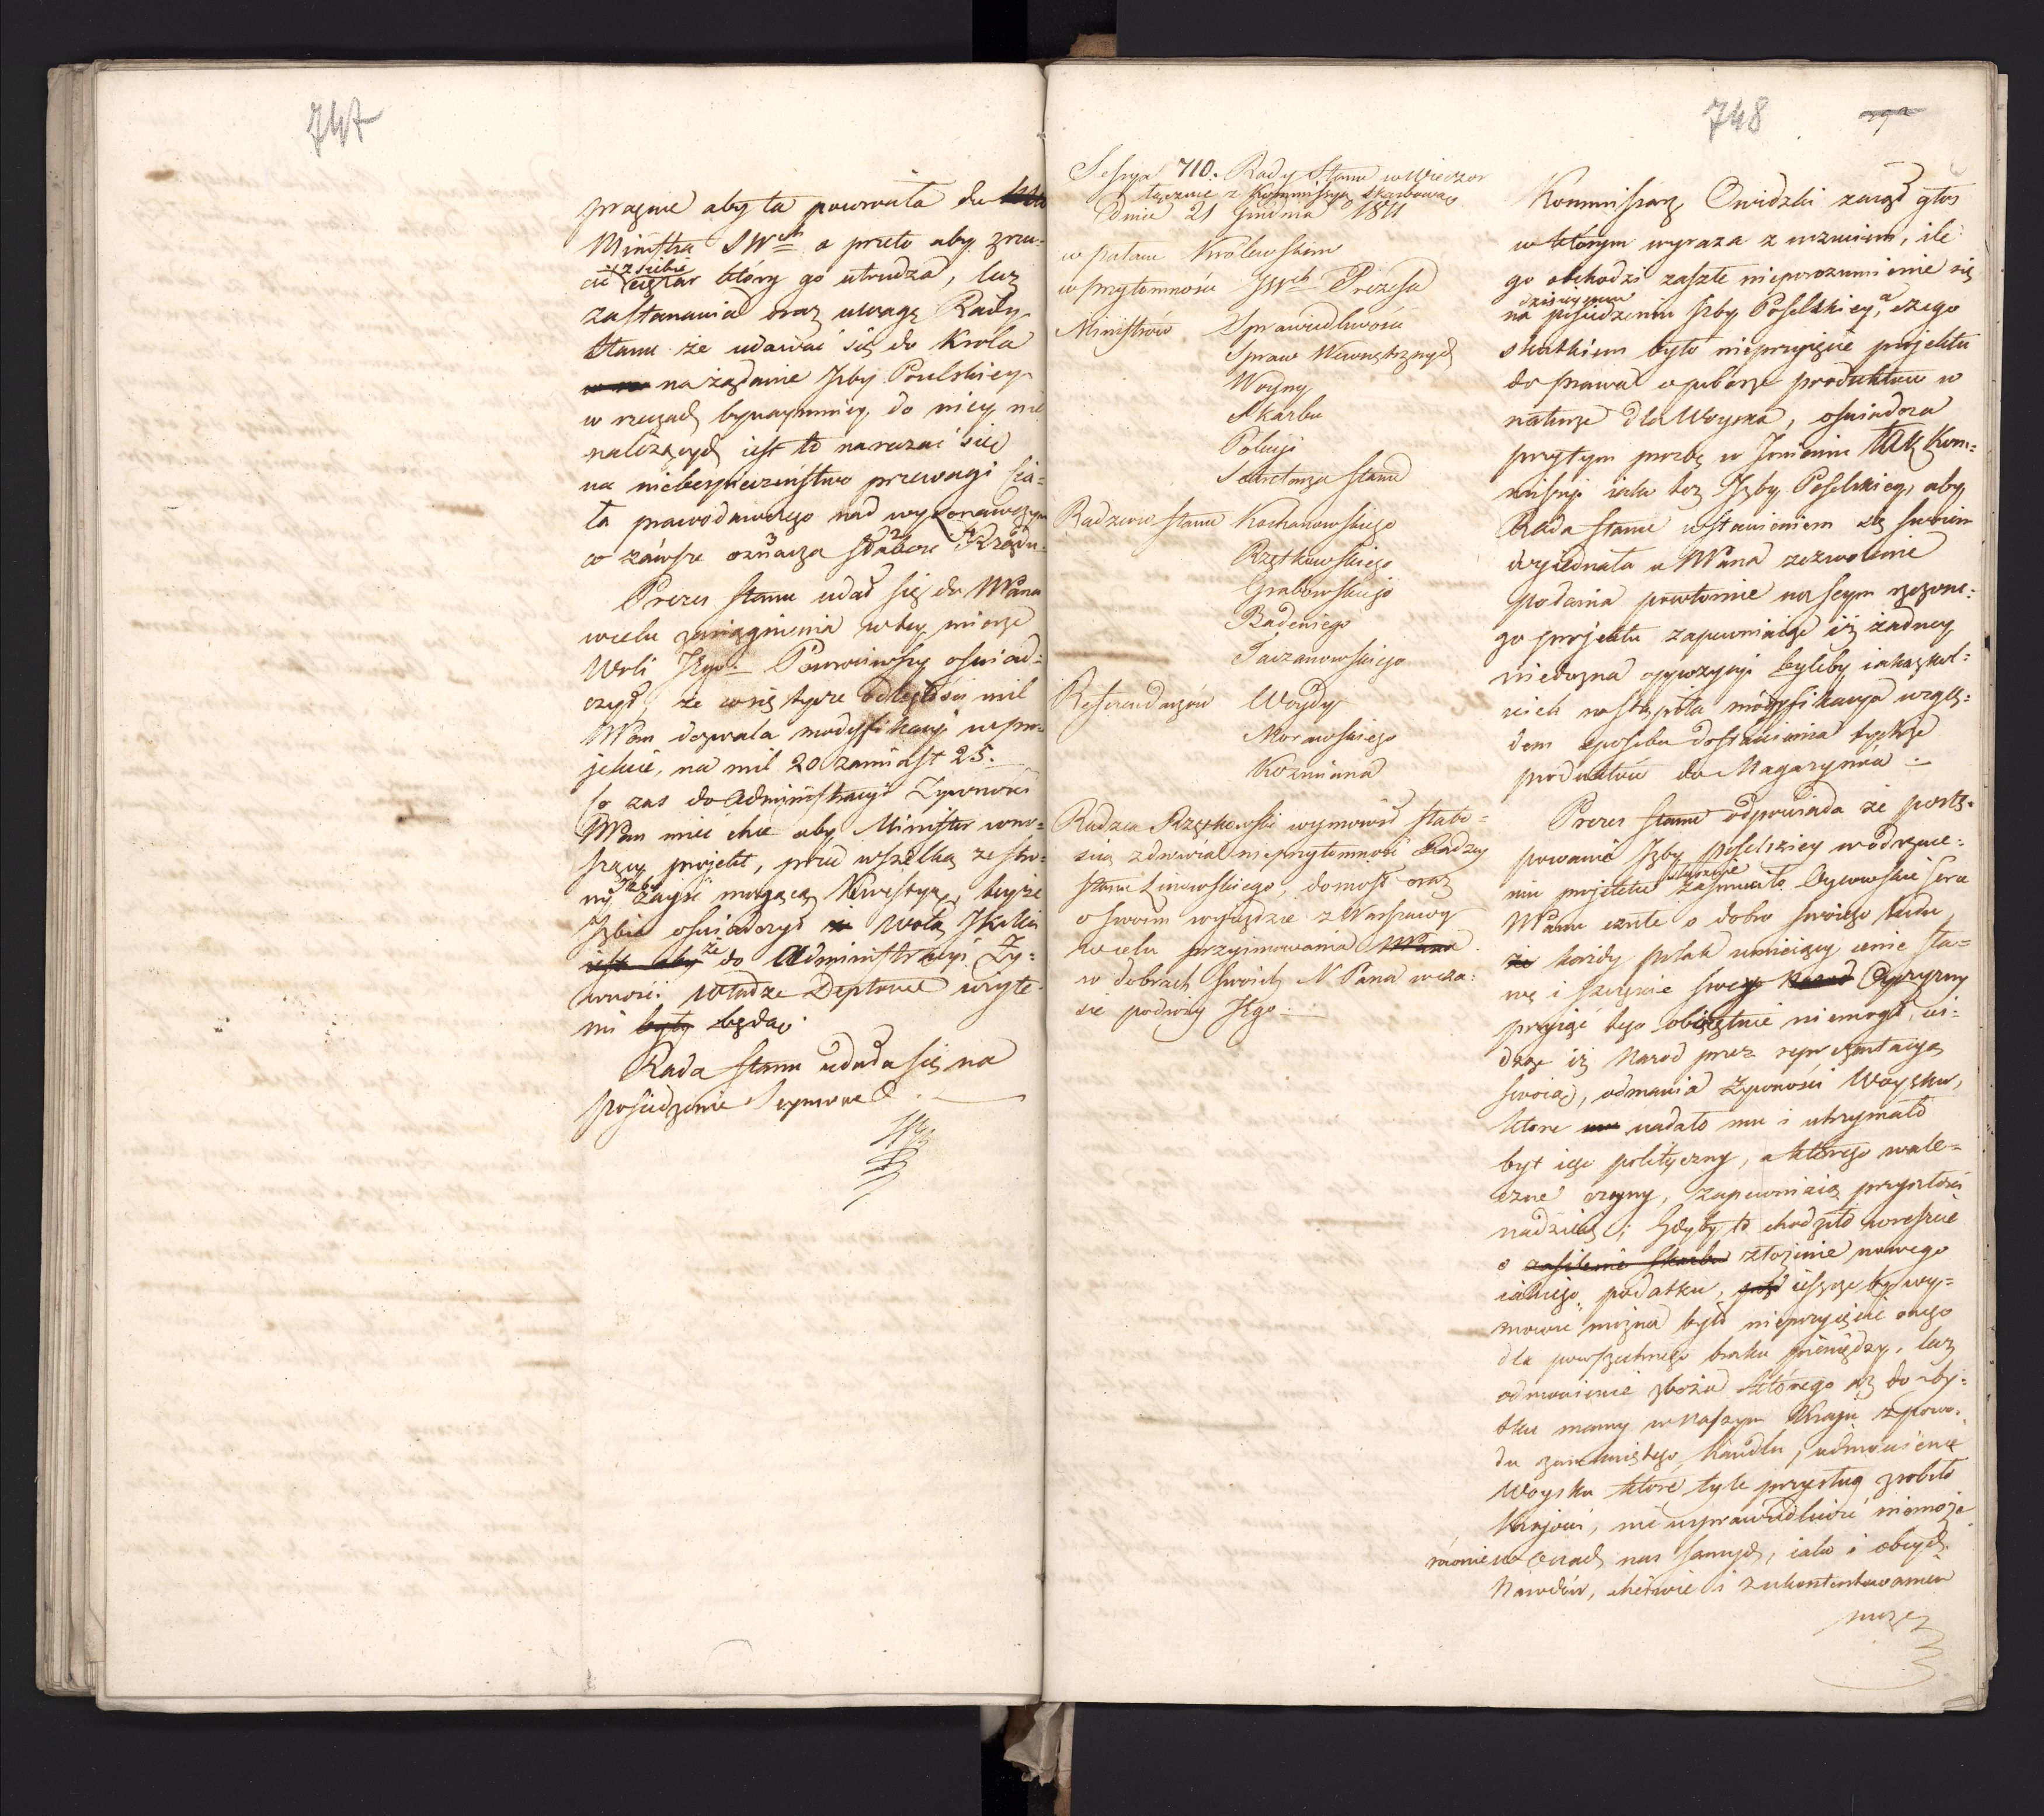 747
pragnie aby ta powróciła do
Ministra SWch a przeto aby zrzu-
cić z siebie ciężar który go utrudza, lecz
zastanawia oraz uwagę Rady
Stanu że udawać się do Krola
na żądanie Izby Poselskiey
w rzeczach bynaymniey do niey nie
należących iest to narażać się
na niebezpieczeństwo przewagi Cia-
ła prawodawczego nad wykonawczym
co zawsze oznacza słabość Rządu.
Prezes Stanu udał się do NPana
w celu zasiągnienia w tey mierze
Woli Jego. Powróciwszy oświad-
czył, że co się tycze odległości mil
NPan dozwala modyfikacyi w pro-
jekcie, na mil 20 zamiast 25.
Co zaś do Administracyi Żywności
NPan mieć chce aby Minister wno-
szący projekt, przed wszelką ze stro-
ny Izby zayść mogącą kwestyą, teyże
Izbie oświadczył wolą JKMci
iest aby że do Administracyi Ży-
wności władze Deptowe użyte-
mi były będą.
Rada Stanu udała się na
posiedzenie Seymowe.
748
Sessya 710. Rady Stanu w wieczor
łącznie z Kommissyą Skarbową
Dnia 21 Grudnia 1811
w pałacu Królewskim
w przytomności JWch Prezesa
Ministrów Sprawiedliwości
Spraw Wewnętrznych
Woyny
Skarbu
Policyi
Sekretarza Stanu
Radzców Stanu Kochanowskiego
Rzętkowskiego
Grabowskiego
Badeniego
Taczanowskiego
Referendarzów Woydy
Morawskiego
Kozmiana
Radzca Rzętkowski wymówił słabo-
ścią zdrowia nieprzytomność Radzcy
Stanu Linowskiego, doniosł oraz
o swoim wyjeździe z Warszawy
w celu przyjmowania NPana
w dobrach swoich N Pana w cza-
sie podróży Jego.
Kommissarz Owidzki zabrał głos
w którym wyraża z uczuciem, ile
go obchodzi zaszłe nieporozumienie się
dzisieysze
na posiedzeniu Izby Poselskiey, a czego
skutkiem było nieprzyięcie projektu
do prawa o poborze produktów w
naturze dla Woyska, oświadcza
przytym prozbę w Imieniu tak Kom-
missyi iako też Izby Poselskiey, aby
Rada Stanu wstawieniem się swoim
wyjednała u NPana zezwolenie
podania powtórnie na Seym rzeczone-
go projektu zapewniając iż żadney
niedozna oppozycyi byleby iakażkol-
wiek nastąpiła modyfikacya wzglę-
dem sposobu dostawienia tychże
produktów do Magazynów.
Prezes Stanu odpowiada że postę-
powanie Izby poselskiey w odrzuce-
niu projektu zasmuciło Oycowskie serce
NPana czułe o dobro swoiego ludu
że każdy polak umieiący cenić sła-
wę i szczęście swey Naród Oyczyzny
przyiąć tego obojętnie niemogł, wi-
dząc iż Narod przez reprezentacyą
swoią, odmawia żywności Woysku,
które nadało mu i utrzymało
byt iego polityczny, a którego wale-
czne czyny, zapewniaią przyszłości
nadzieię; Gdyby to chodziło wreszcie
o zasilenie Skarbu złożenie nowego
iakiego podatku, ieszcze by wy-
mówić można było nieprzyięcie onego
dla powszechnego braku pieniędzy, lecz
odmówienie zboża którego aż do zby-
tku mamy w naszym Kraju z powo-
du zamkniętego handlu, odmówienie
Woysku które tyle przysług zrobiło
krajowi, nic usprawiedliwić niemoże
równie w oczach nas samych, iako i obcych
Narodów, chciwie i z ukontentowaniem